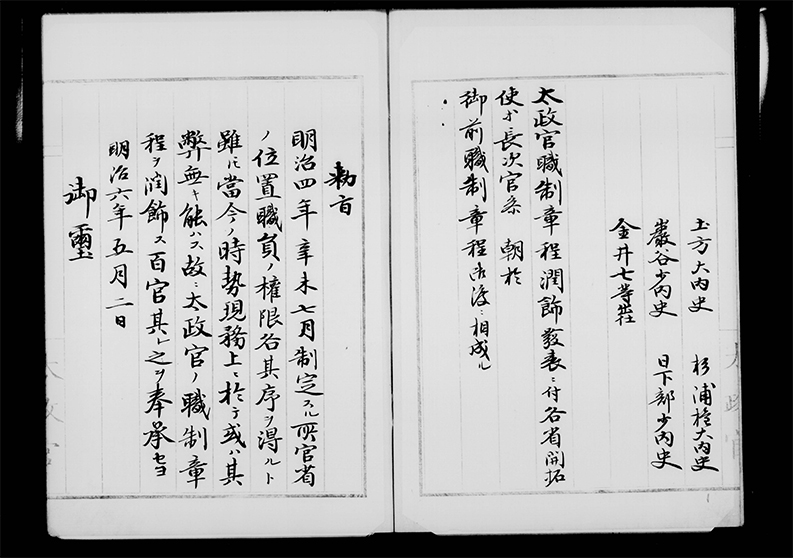 土方大内史　杉浦権大内史
巌谷少内史　日下部少内史
金井七等出仕
太政官職制章程潤飾発表ニ付各省開拓
使ヨリ長次官参　朝於
御前職制章程御渡ニ相成ル
勅旨
明治四年辛未七月制定スル所官省
ノ位置職員ノ権限各其序ヲ得ルト
雖ﾓ當今ノ時勢現務上ニ於テ或ハ其
弊無キ能ハス故ニ太政官ノ職制章
程ヲ潤飾ス百官其レ之ヲ奉承セヨ
明治六年五月二日
御璽
太政官
太政官